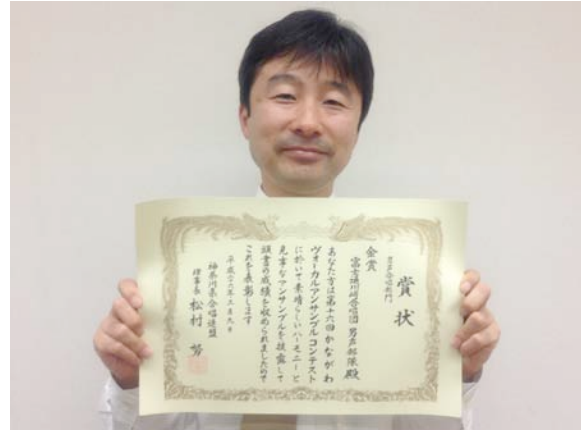 賞状
男声合唱部門
金賞
富士湘川崎合唱団 男声部隊殿
あなた方は第十六回かながわ
ヴォーカルアンサンブルコンテスト
に於いて素晴らしいハーモニーと
見事なアンサンブルを披露して
頭書の成績を収められましたので
これを表彰します
平成二六年三月九日
神奈川県合唱連盟
理事長 松村 努